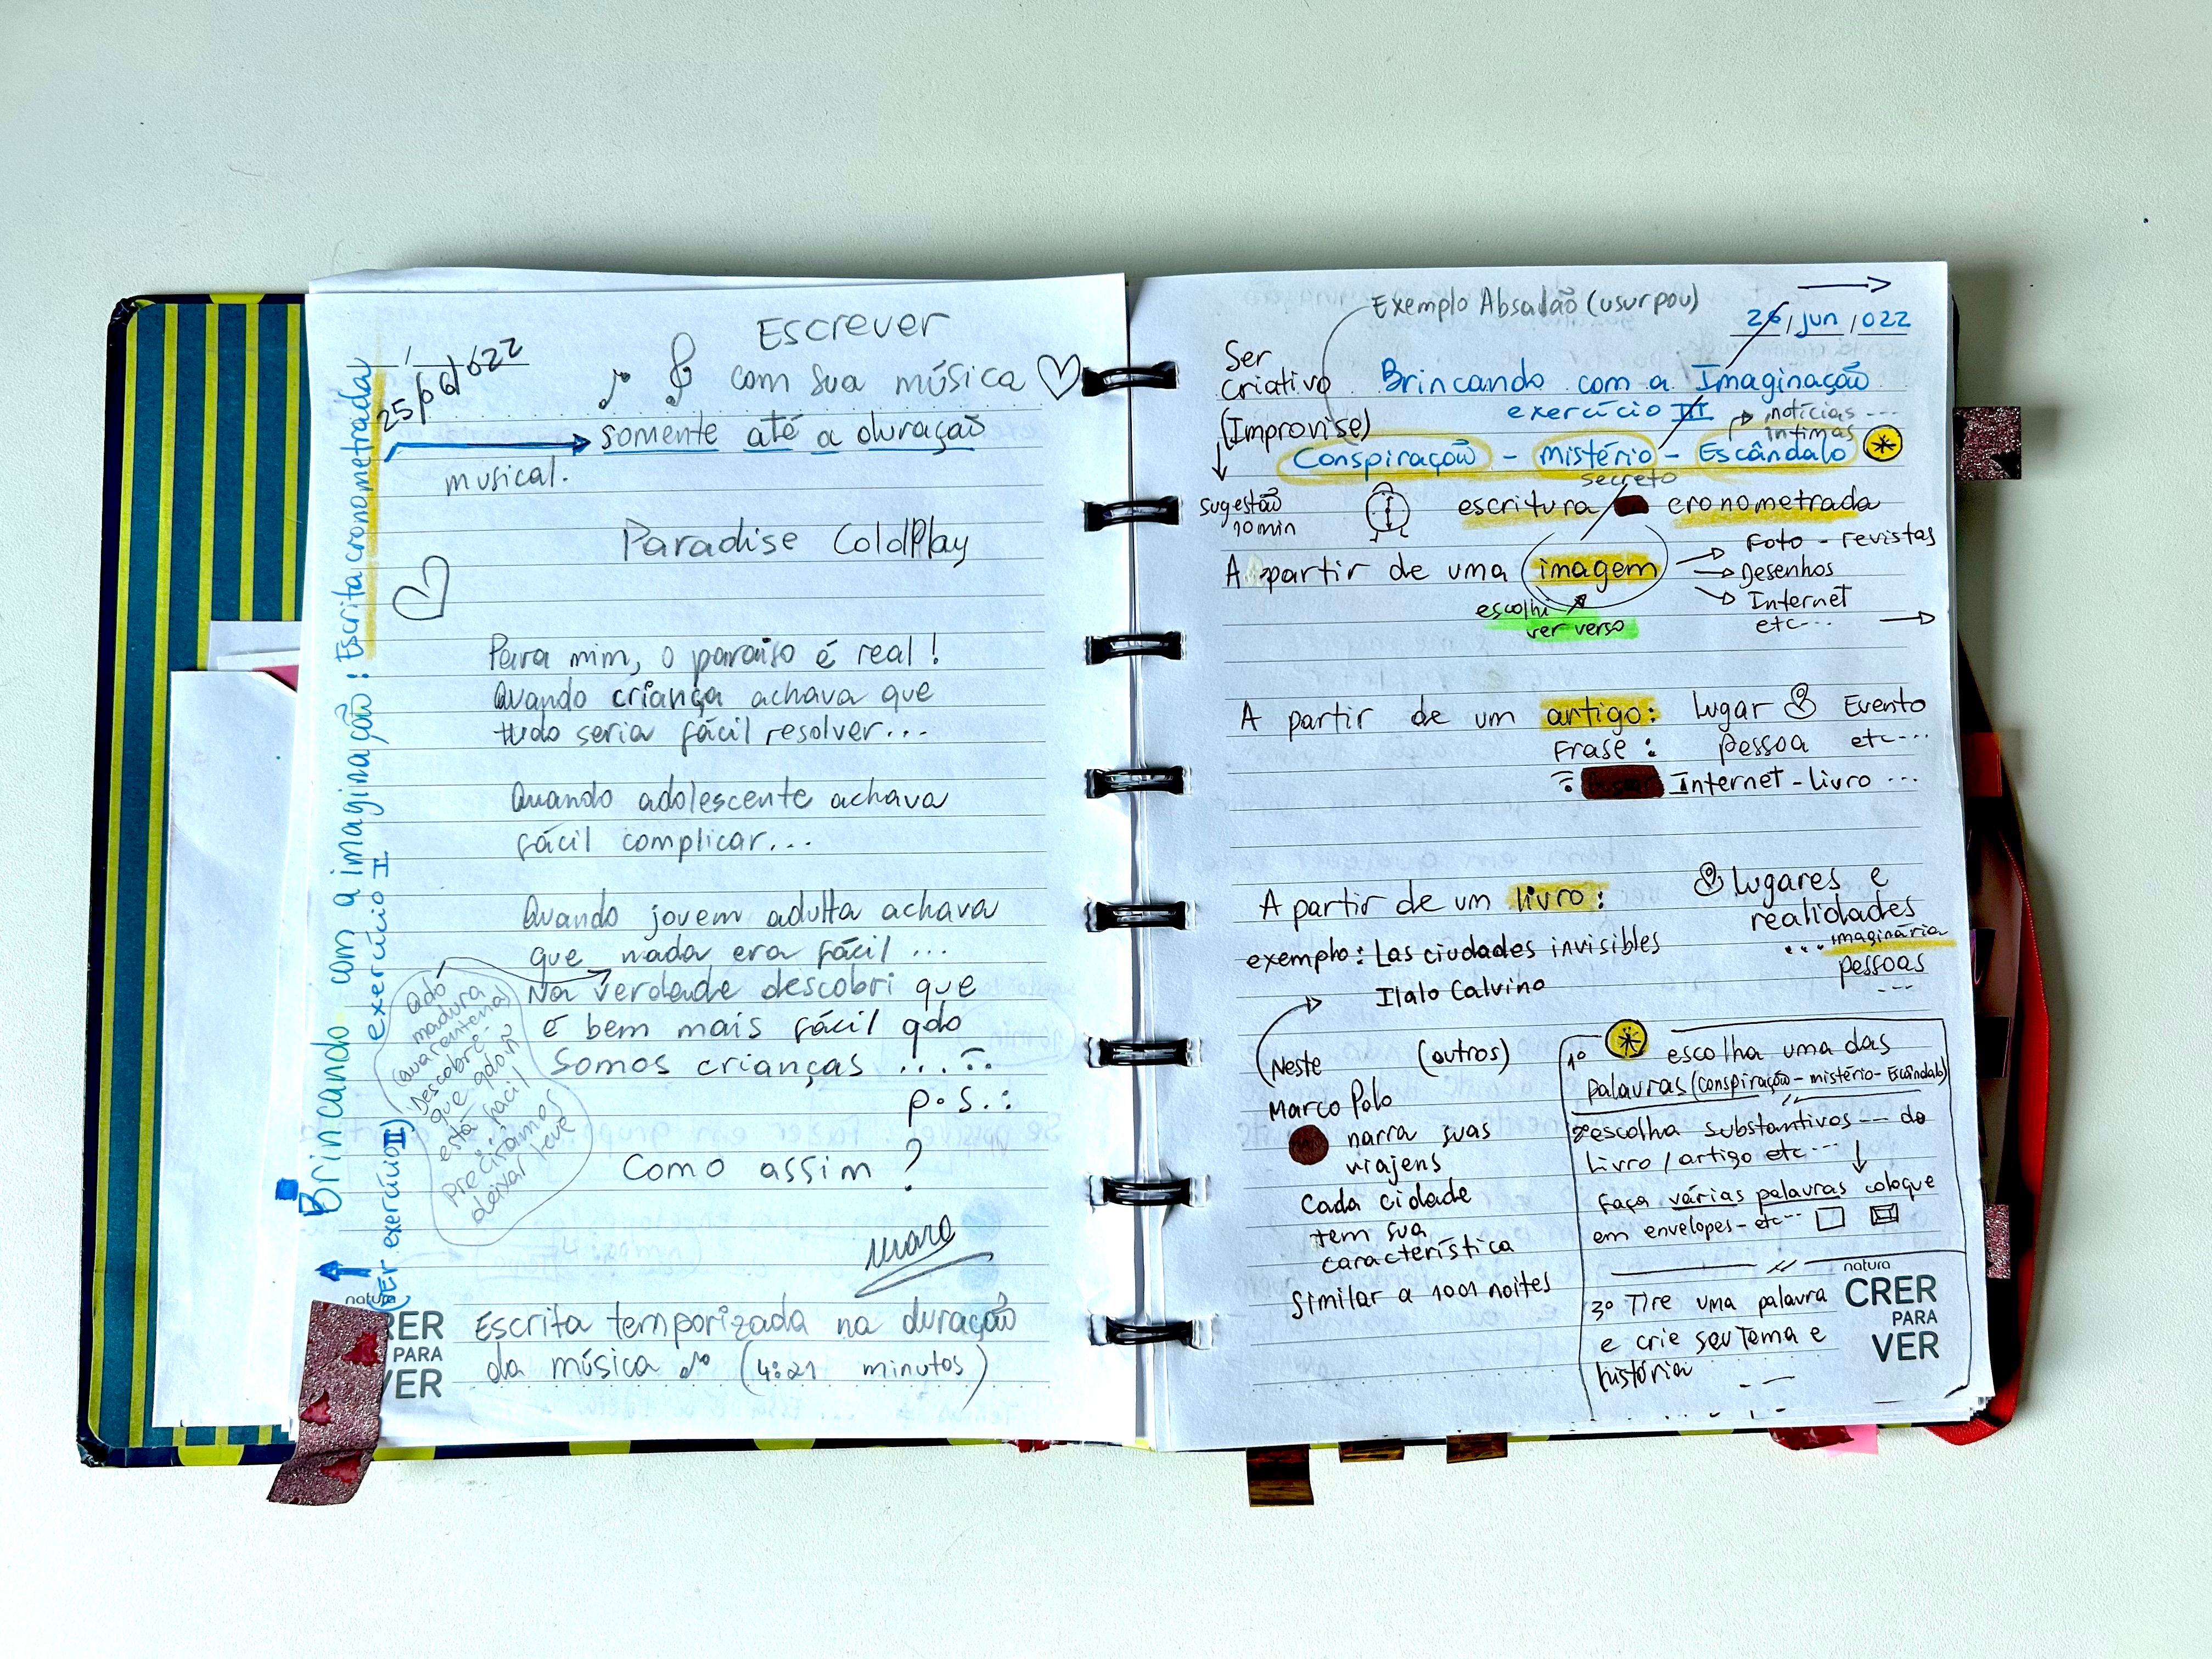 Escrever
com sua música
somente até a duração
musical.
Paradise ColdPlay
Para mim, o paraíso é real!
Quando criança achava que
tudo seria fácil resolver...
Quando adolescente achava
fácil complicar...
Quando jovem adulta achava
que nada era fácil ...
Na verdade descobri que
é bem mais fácil qdo
somos crianças ...
P.S.:
Como assim ?
Mara
Escrita temporizada na duração
da música (4:21 minutos)
Brincando com a imaginação: Escrita cronometrada
exercício II
(ver exercício III)
Qdo
madura
(quarentena)
Descobre-
que qdo ñ
está fácil
precisamos
deixar leve
natura
CRER
PARA
VER
Exemplo Absadão (usurpou)
26/jun/022
Ser
criativo
(Improvise)
sugestão
10 min
Brincando com a Imaginação
exercício III
notícias ...
íntimas
Conspiração - mistério - Escândalo
secreto
escritura cronometrada
A partir de uma imagem
Foto - revistas
Desenhos
Internet
etc...
escolhi
ver verso
A partir de um artigo: Lugar Evento
Frase: pessoa etc...
Internet - livro ...
A partir de um livro:
Lugares e
realidades
... imaginária
pessoas
...
exemplo: Las ciudades invisibles
Italo Calvino
Neste (outros)
Marco Polo
narra suas
viajens
Cada cidade
tem sua
característica
similar a 1001 noites
1º escolha uma das
palavras (conspiração - mistério - Escândalo)
2º escolha substantivos --- do
livro / artigo etc...
Faça várias palavras coloque
em envelopes - etc...
3º Tire uma palavra
e crie seu Tema e
história
natura
CRER
PARA
VER